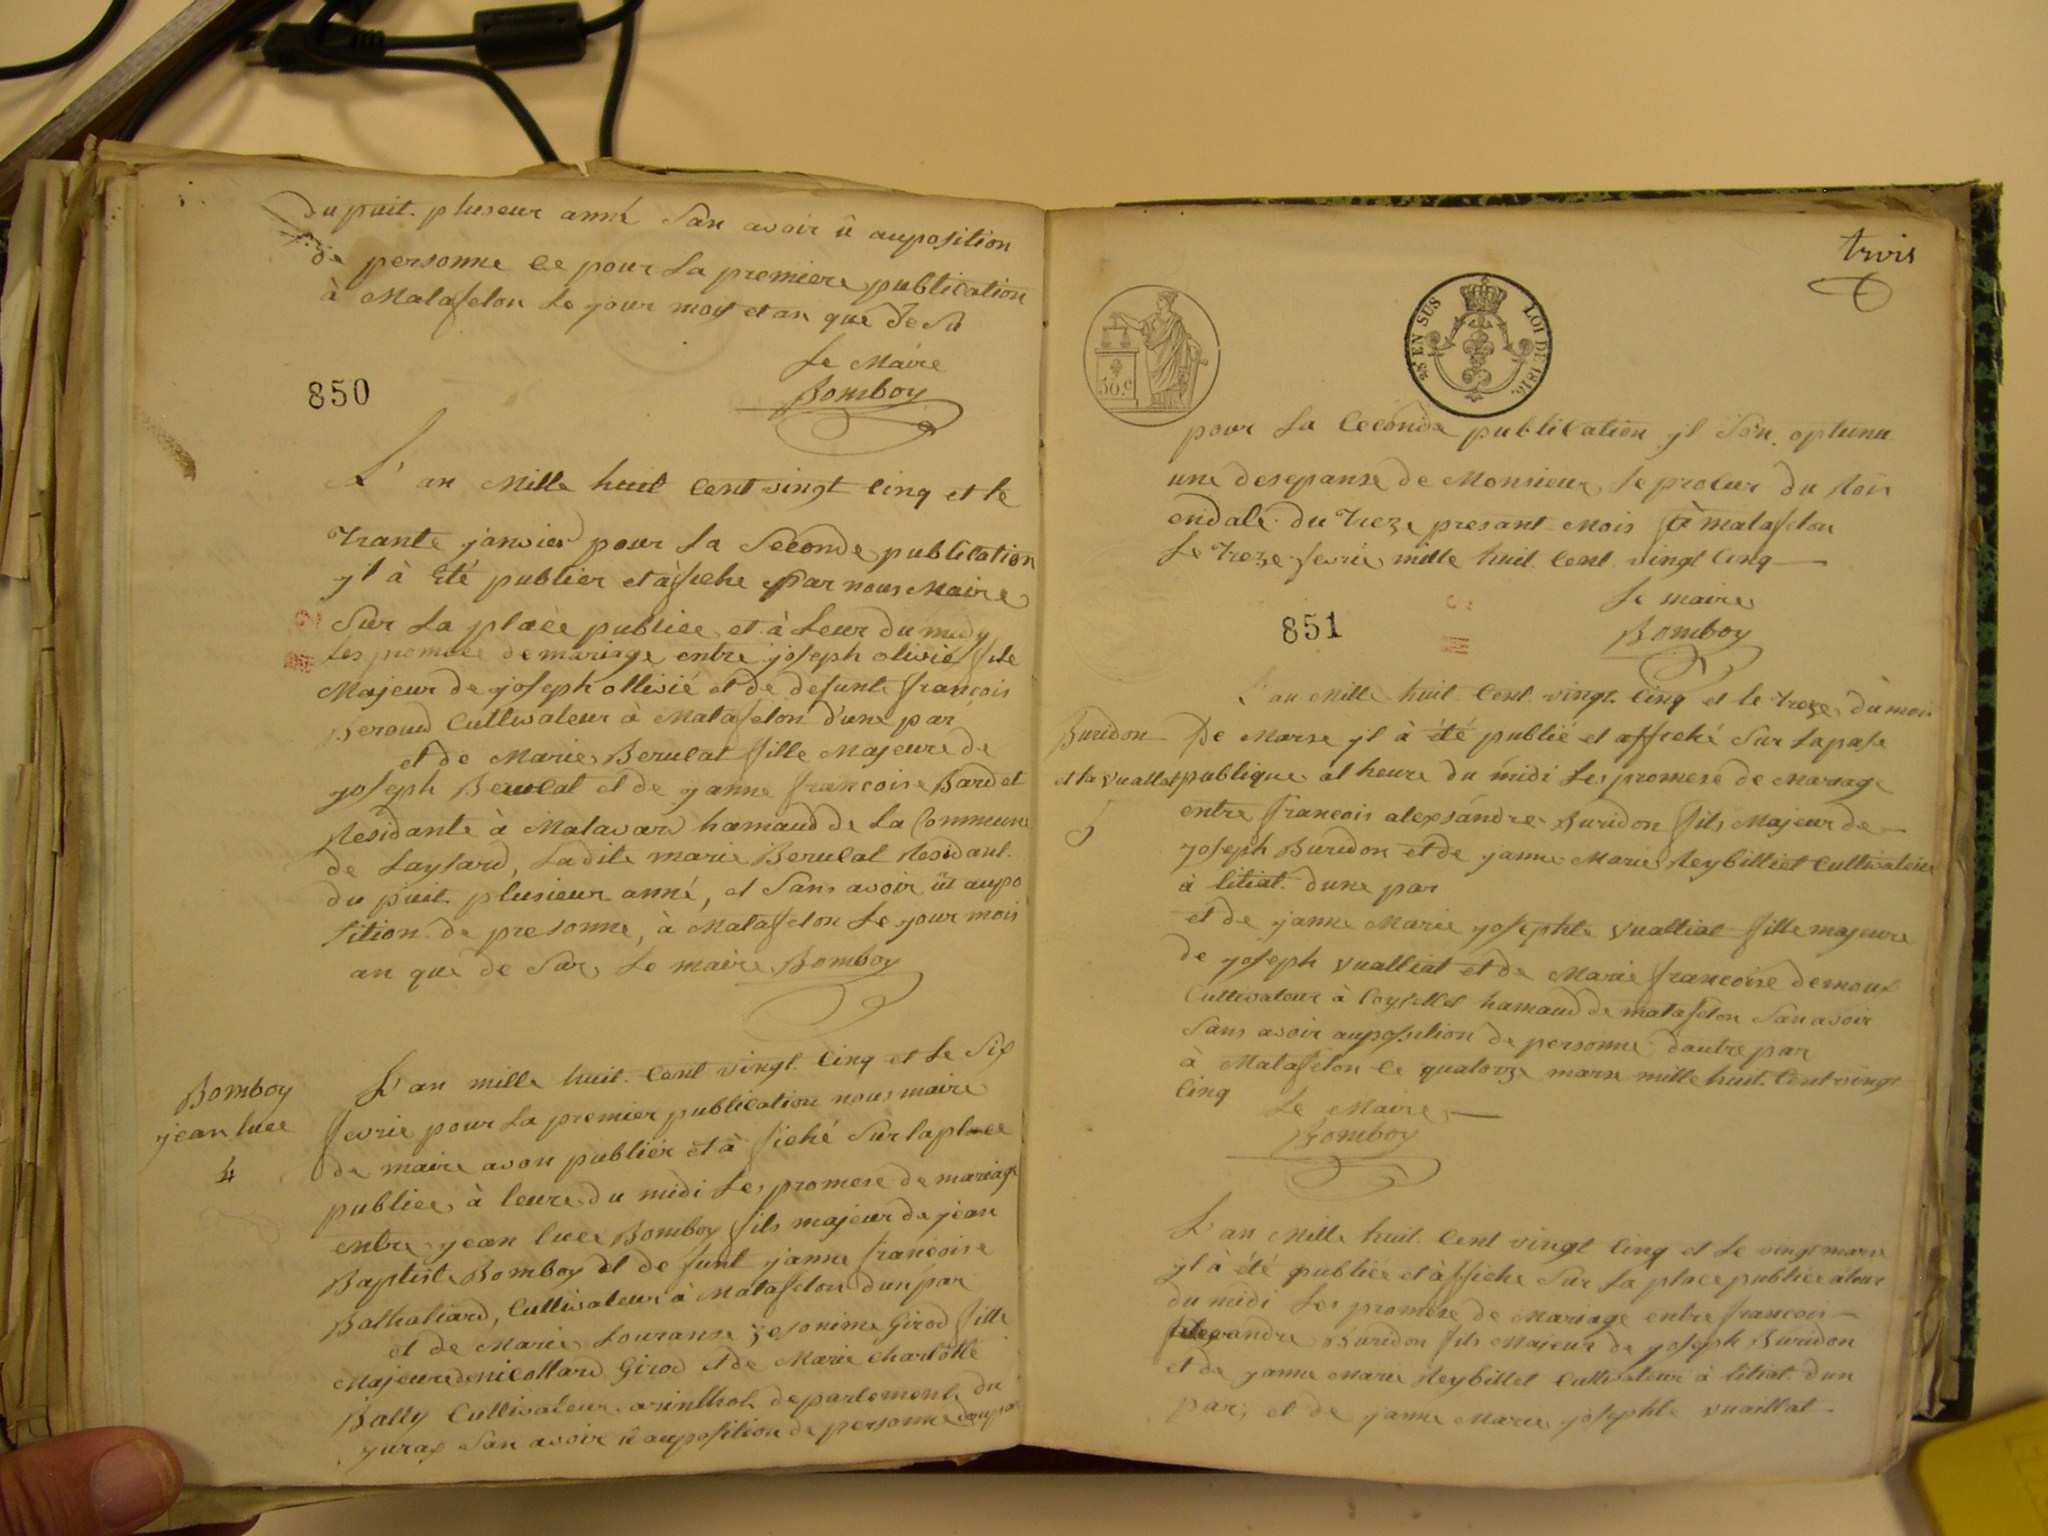 du puit. pluseur anné San avoir û auposition
de personne Ce pour La premiere publication
à Matafelon Le jour moy et an que de Su
Le Maire
Bomboy
850
L'an Mille huit Cent vingt Cinq et le
Trante janvier pour La Seconde publication
yl à Eté publier et àfiche par nous Maire
Sur La placee publiee et à Leur du midy
Les promese de mariage entre joseph olivié fils
Majeur de joseph ollivié et de defunte françois
Beroud Cultivateur à Matafelon d'une par
et de Marie Berulat fille Majeure de
joseph Berulat et de janne françoise Bardet
Residante à Matavard hamaud de La Commune
de Laysard, Ladite marie Berulat Residant.
du puit. plusieur anné, et Sans avoir üt aupo
sition de presonne, à Matafelon Le jour mois
an que de Sur Le maire Bomboy
Bomboy
jean luce
4
L'an mille huit. Cent vingt. Cinq et Le Six
fevrie pour La premier publication nous maire
de maire avon publier et à fiché Sur la place
publiee à leure du midi Les promese de mariage
entre jean luce Bomboy fils majeur de jean
Baptiste Bomboy et de funt janne françoise
Balthaliard, Cultivateur à Matafelon d'un par
et de Marie Louranse jeronime Girod fille
Majeure de nicollard Girod et de Marie Charlotte
Bally Cultivateur arinthod departement du
jurax San avoir û auposition de personne
trois
50.c
2S EN SUS LOI DE 1816.
pour La Ceconde publication yl Son optunu
une desepanse de Monsieur Le procur du Roi
endate du Treze presant Mois à matafelon
Le Treze fevrie mille huit Cent vingt Cinq
Le maire
851
Bomboy
L'an Mille huit Cent vingt. Cinq et le treze du mois
Buridon
et la vuallat
5
De Marse yl à été publié et affiché Sur la pase
publique al heure du midi Les promese de Mariage
entre francois alexsandre Buridon fils Majeur de
joseph Buridon et de janne Marie Reybilliet Cultivateur
à litiat. dune par
et de janne Marie josephte vualliat fille majeure
de joseph vualliat et de Marie françoise demoux
Cultivateur à Coysellet hamaud de matafelon San avoir
Sans avoir auposition de personne dautre par
à Matafelon Ce quatorze marse mille huit Cent vingt
Cinq
Le Maire
Bomboy
L'an Mille huit Cent vingt Cinq et Le vingt mars
yl à été publiée et àffiche Sur La place publiee àleur
du midi Les promese de Mariage entre francois
alexandre Buridon fils Majeur de joseph Buridon
et de janne Marie Reybillet Cultivateur à litiat. dun
par, et de janne Marie josephte vuaillat